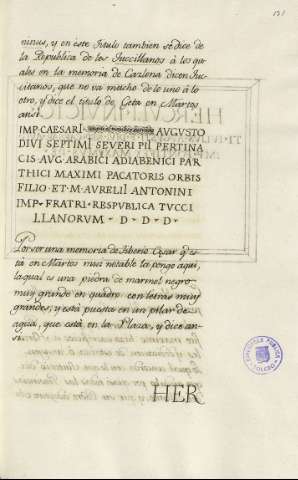 131
ninus, y en este Titulo tambien se dice de
la Republica de los Tuccillanos à los qu
ales en la memoria de Cazlona dicen Tuc
citanos, que no va mucho de lo uno à lo
otro, y dice el titulo de Geta en Martos
ansi.
IMP CAESARI AVGVSTO
DIVI SEPTIMI SEVERI PII PERTINA
CIS AVG ARABICI ADIABENICI PAR
THICI MAXIMI PACATORIS ORBIS
FILIO · ET · M · AVRELII ANTONINI
IMP · FRATRI · RESPVBLICA TVCCI
LLANORVM · D · D · D ·
Por ser una memoria de Tiberio Cesar q.e es
tá en Martos mui notable la pongo aqui,
la qual es una piedra de marmol negro
muy grande en quadro con letras muy
grandes, y está puesta en un pilar de
agua, que está en la Plaza, y dice an
si.
HER
BIBLIOTECA PUBLICA
TOLEDO